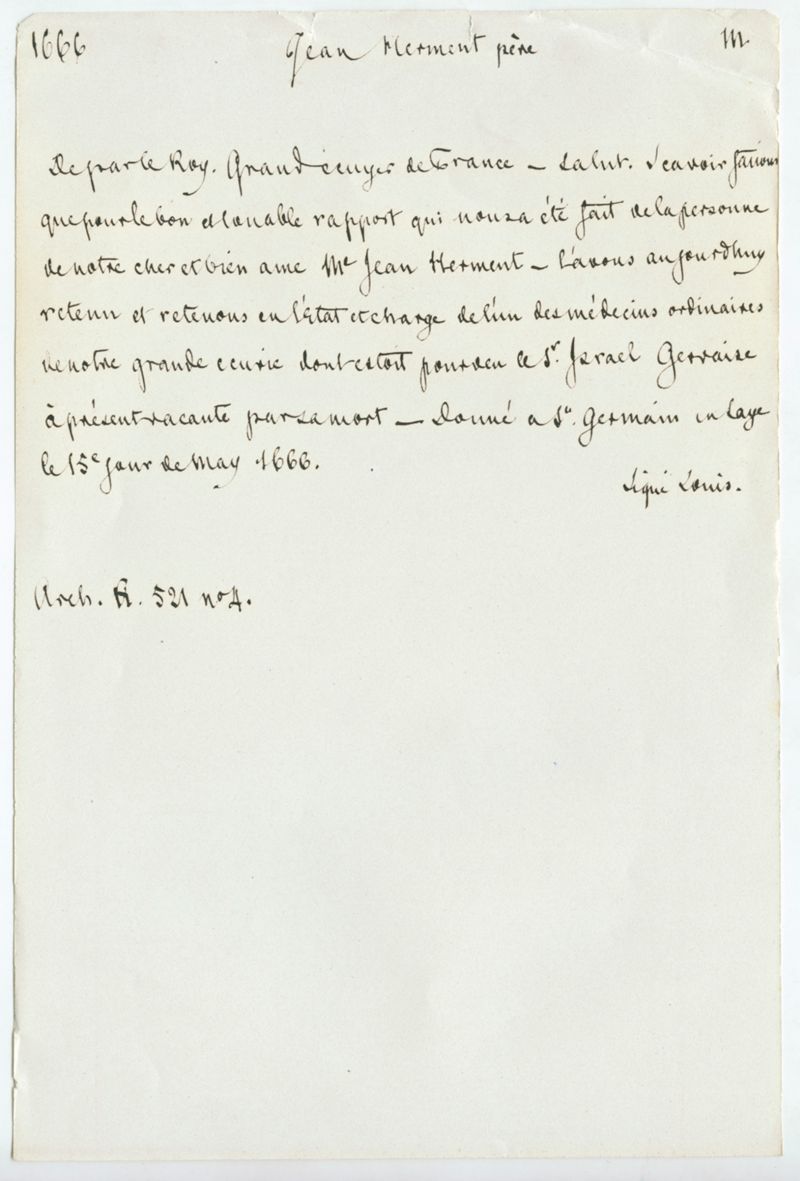 1666 Jean Herment père M
De par le Roy. Grand écuyer de France – Salut. Scavoir faisons
que pour le bon et louable rapport qui nous a été fait de la personne
de notre cher et bien ame Me Jean Herment – l'avons aujourdhuy
retenu et retenons en l'Etat et charge de l'un des médecins ordinaires
de notre grande ecurie dont estoit pourveu le Sr. Israel Gervaise
à présent vacante par sa mort – Donné a St. Germain en Laye
le 15e jour de May 1666.
Signé Louis.
Arch. K. 521 no 4.